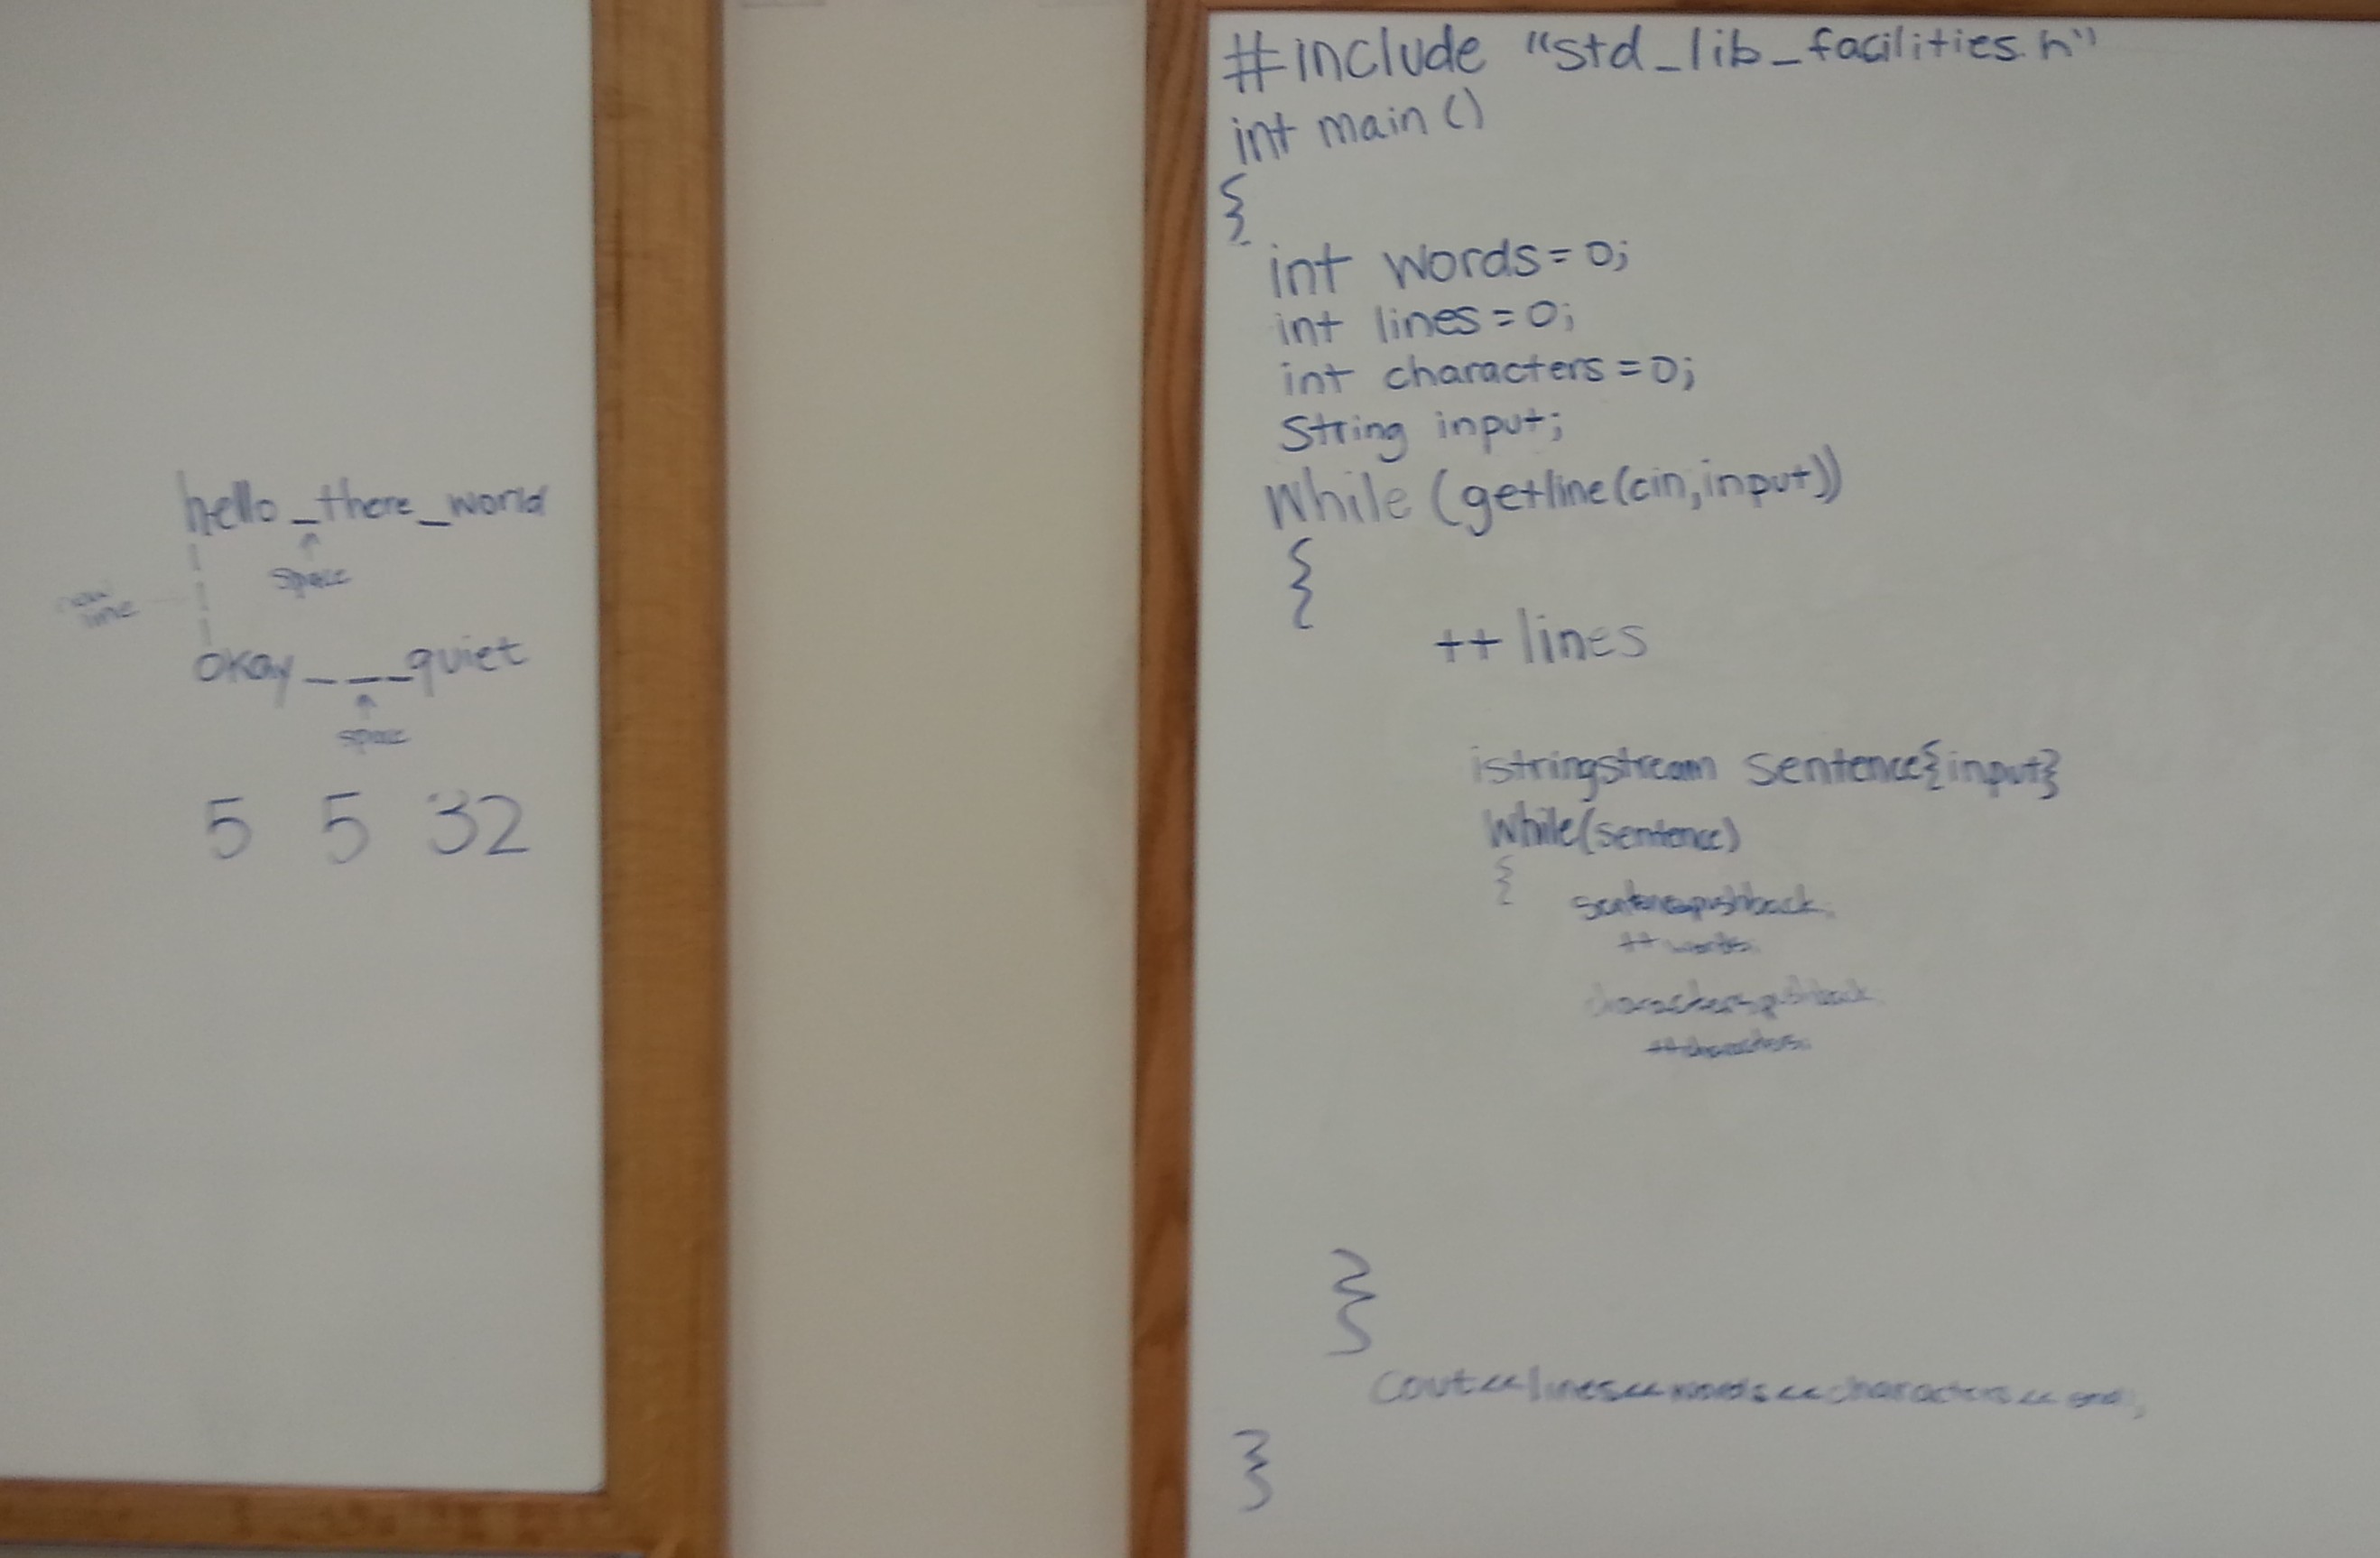 hello_there_world
space
new
line
okay___quiet
space
5 5 32
#include "std_lib_facilities.h"
int main()
{
int words=0;
int lines=0;
int characters=0;
String input;
While (getline(cin,input))
{
++ lines
istringstream sentence{input}
While(sentence)
{
sentence.pushback
++ words
characters.pushback
++characters
}
cout<<lines<<words<<characters<<
}